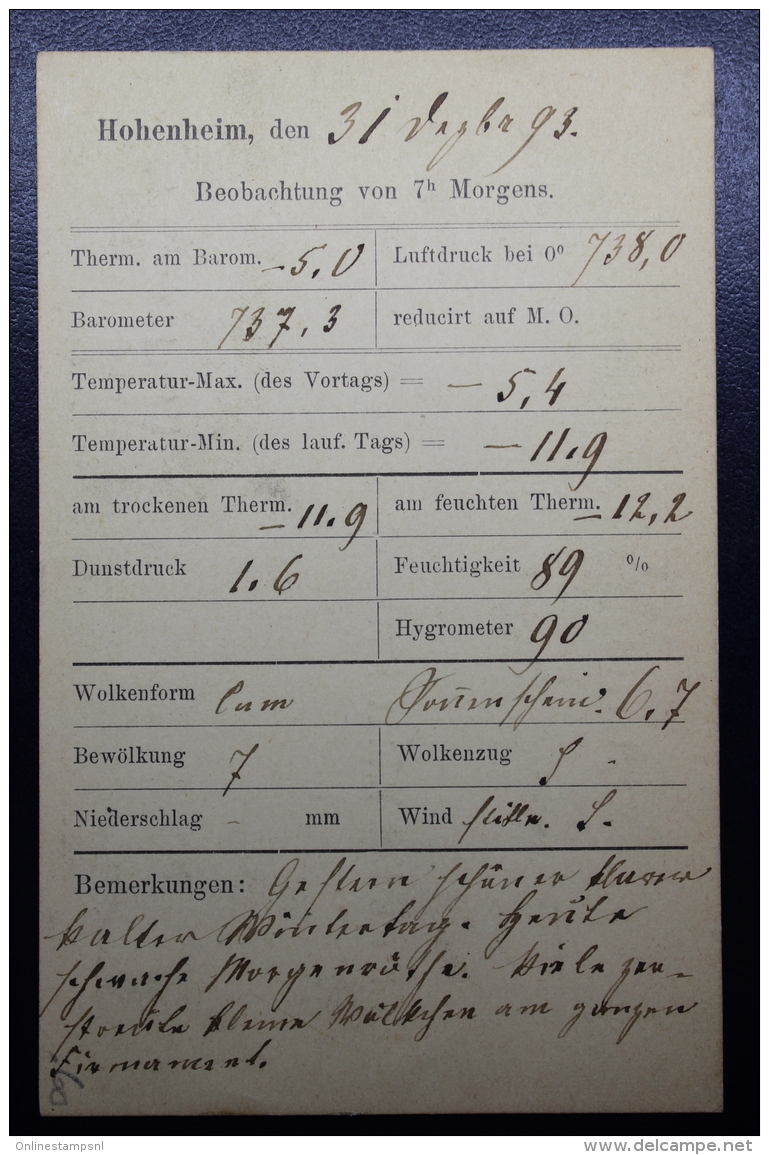 Hohenheim, den 31 Dezbr 93.
Beobachtung von 7ʰ Morgens.
Therm. am Barom. –5,0 Luftdruck bei 0⁰ 738,0
Barometer 737,3 reducirt auf M. O.
Temperatur-Max. (des Vortags) = – 5,4
Temperatur-Min. (des lauf. Tags) = – 11.9
am trockenen Therm. – 11.9 am feuchten Therm. – 12,2
Dunstdruck 1.6 Feuchtigkeit 89 %
Hygrometer 90
Wolkenform Cum Sonnenschein: 6.7
Bewölkung 7 Wolkenzug S -
Niederschlag – mm Wind stille. S.
Bemerkungen: Gestern schöner klarer
kalter Wintertag. Heute
schwache Morgenröthe. Viele zer-
streute kleine Wölkchen am ganzen
Firmament.
60
Onlinestampsnl
www.delcampe.net